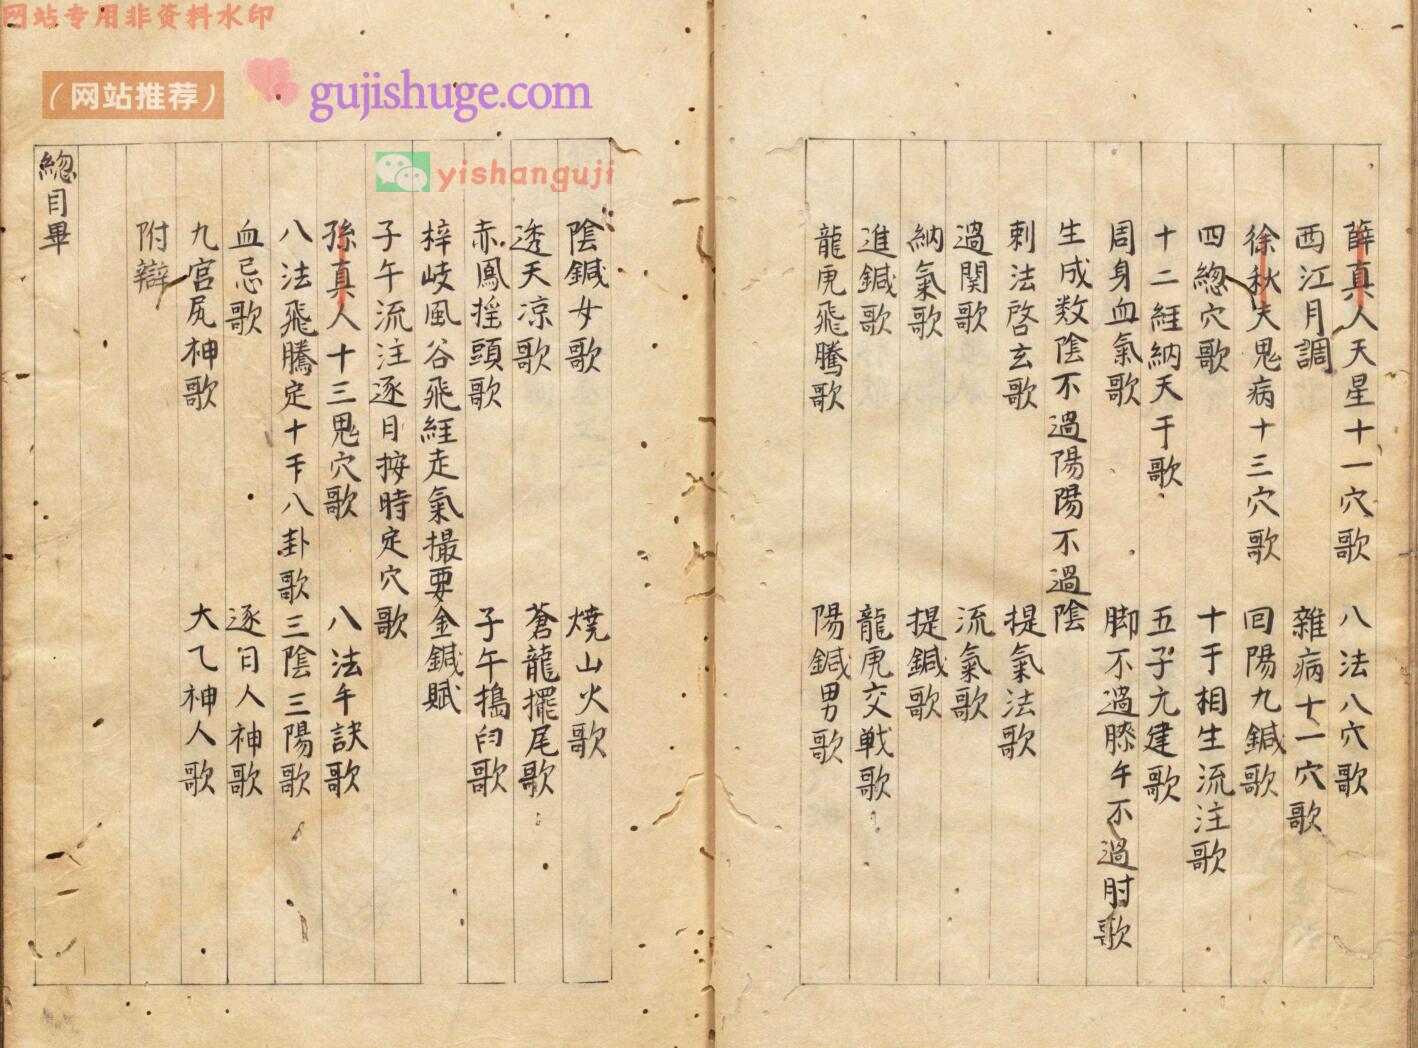 网站专用非资料水印
（网站推荐）
gujishuge.com
yishanguji
薛真人天星十一穴歌 八法八穴歌
西江月調 雜病十一穴歌
徐秋夫鬼病十三穴歌 回陽九鍼歌
四總穴歌 十干相生流注歌
十二經納天干歌 五子元建歌
周身血氣歌 脚不過膝午不過肘歌
生成数陰不過陽陽不過陰
刺法啓玄歌 提氣法歌
過関歌 流氣歌
納氣歌 提鍼歌
進鍼歌 龍虎交戦歌
龍虎飛騰歌 陽鍼男歌
陰鍼女歌 燒山火歌
透天凉歌 蒼龍擺尾歌
赤鳳揺頭歌 子午搗臼歌
梓岐風谷飛経走氣撮要金鍼賦
子午流注逐日按時定穴歌
孫真人十三鬼穴歌 八法午訣歌
八法飛騰定十干八卦歌 三陰三陽歌
血忌歌 逐日人神歌
九宮尻神歌 大乙神人歌
附辯
總目畢